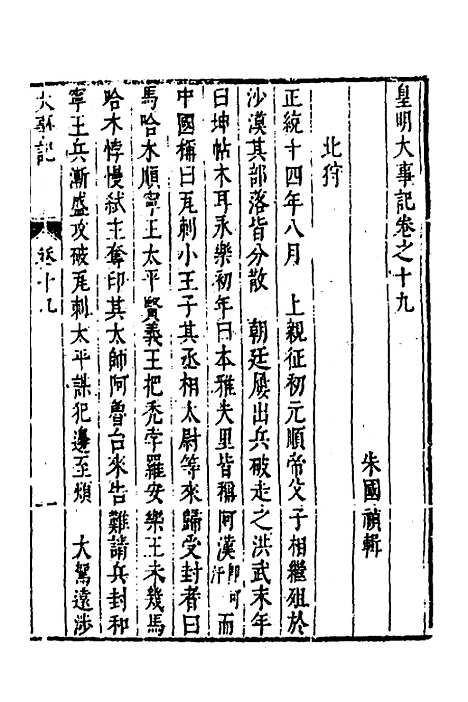 皇明大事記卷之十九
朱國禎輯
北狩
正統十四年八月　上親征初元順帝父子相繼殂於
沙漠其部落皆分散　朝廷屢出兵破走之洪武末年
曰坤帖木耳永樂初年曰本雅失里皆稱阿漢即可汗而
中國稱曰瓦剌小王子其丞相太尉等來歸受封者曰
馬哈木順寧王太平賢義王把禿孛羅安樂王未幾馬
哈木悖慢弑主奪印其太師阿魯台來告難請兵封和
寧王兵漸盛攻破瓦剌太平謀犯邊至煩　大駕遠涉
大事記
卷十九
一